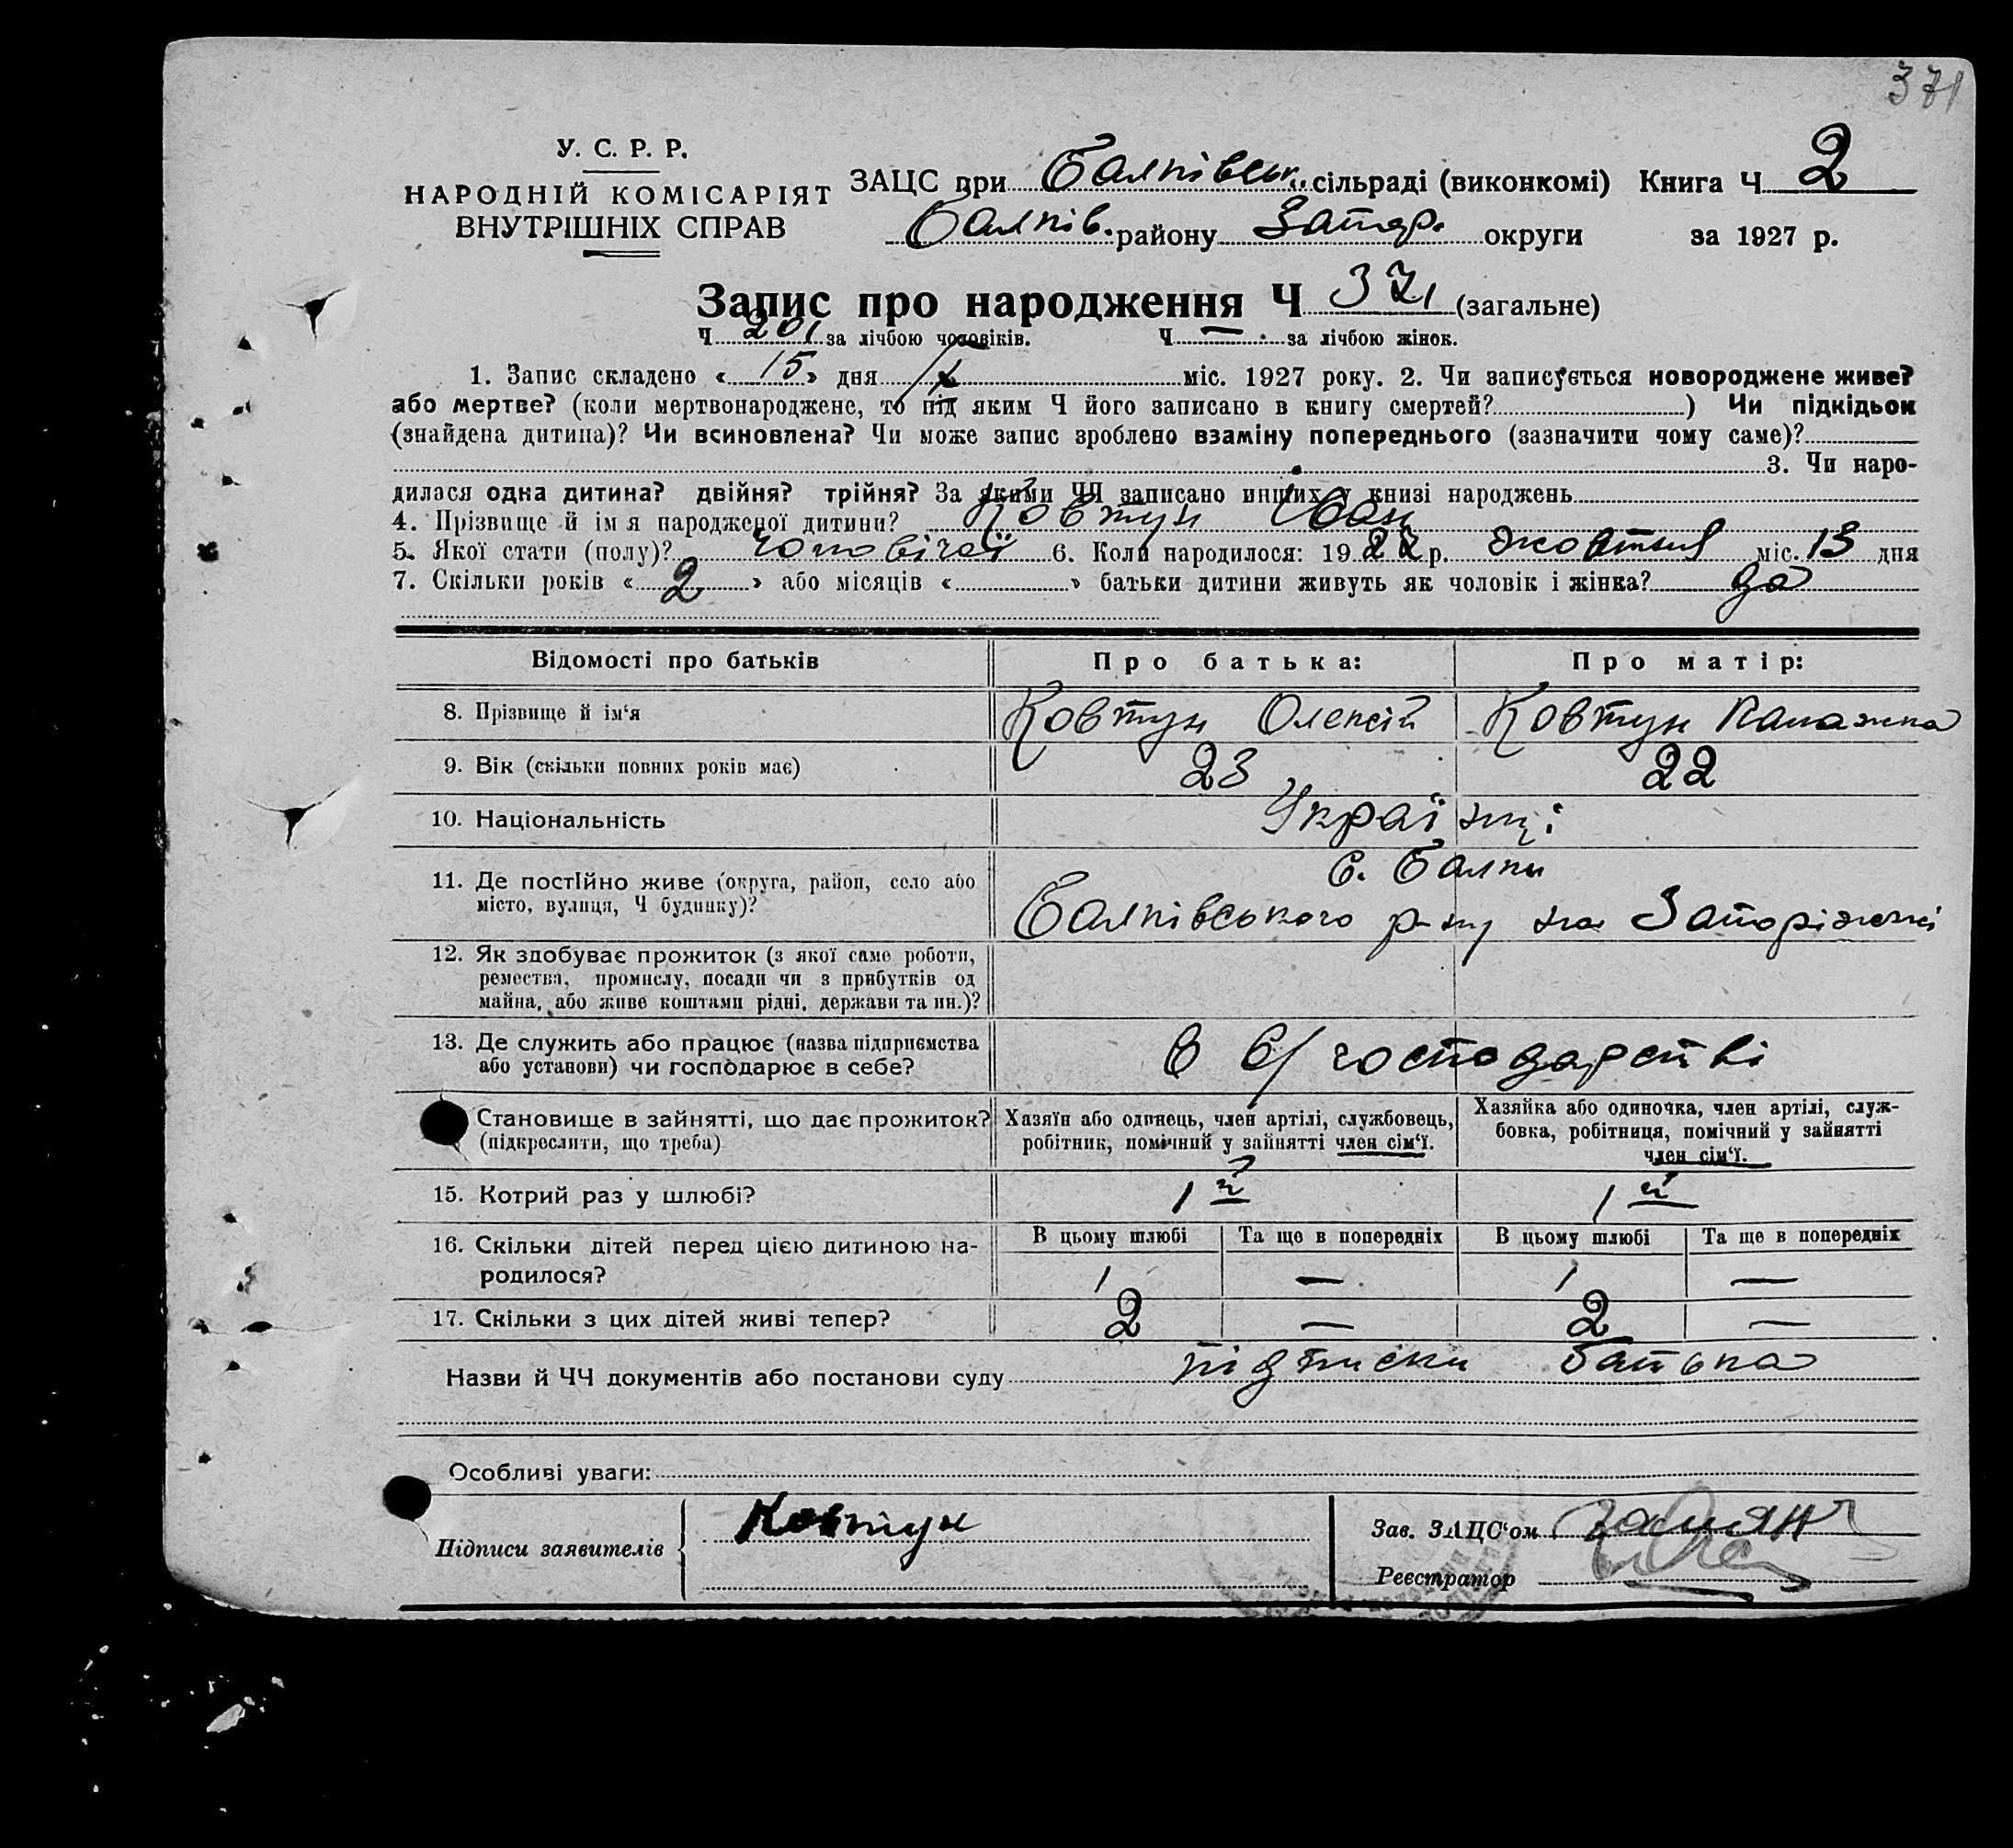 371
У. С. Р. Р.
НАРОДНІЙ КОМІСАРІЯТ
ВНУТРІШНІХ СПРАВ
ЗАЦС при Балківськ. сільраді (виконкомі) Книга Ч 2
Балків. району Запор. округи за 1927 р.
Запис про народження Ч 371 (загальне)
Ч 201 за лічбою чоловіків. Ч — за лічбою жінок.
1. Запис складено « 15 » дня X міс. 1927 року. 2. Чи записується новороджене живе?
або мертве? (коли мертвонароджене, то під яким Ч його записано в книгу смертей?) Чи підкідьок
(знайдена дитина)? Чи всиновлена? Чи може запис зроблено взаміну попереднього (зазначити чому саме)?
3. Чи наро-
дилася одна дитина? двійня? трійня? За якими ЧЧ записано инших у книзі народжень
4. Прізвище й ім я народженої дитини? Ковтун Іван
5. Якої стати (полу)? чоловічої 6. Коли народилося: 1927 р. жовтня міс. 13 дня
7. Скільки років « 2 » або місяців « » батьки дитини живуть як чоловік і жінка? да
Відомості про батьків Про батька: Про матір:
8. Прізвище й ім'я Ковтун Олексій Ковтун Палажка
9. Вік (скільки повних років має) 23 22
10. Національність Українці
11. Де постійно живе (округа, район, село або с. Балки
місто, вулиця, Ч будинку)? Балківського р-ну на Запоріжжі
12. Як здобуває прожиток (з якої саме роботи,
ремества, промислу, посади чи з прибутків од
майна, або живе коштами рідні, держави та ин.)?
13. Де служить або працює (назва підприємства
або установи) чи господарює в себе? в с/господарстві
Становище в зайнятті, що дає прожиток? Хазяїн або одинець, член артілі, службовець, Хазяйка або одиночка, член артілі, служ-
(підкреслити, що треба) робітник, помічний у зайнятті член сім'ї. бовка, робітниця, помічний у зайнятті
член сім'ї.
15. Котрий раз у шлюбі? 1й 1й
16. Скільки дітей перед цією дитиною на- В цьому шлюбі Та ще в попередніх В цьому шлюбі Та ще в попередніх
родилося? 1 — 1 —
17. Скільки з цих дітей живі тепер? 2 — 2 —
Назви й ЧЧ документів або постанови суду підписки батька
Особливі уваги:
Підписи заявителів Ковтун
Зав. ЗАЦС'ом
Реєстратор